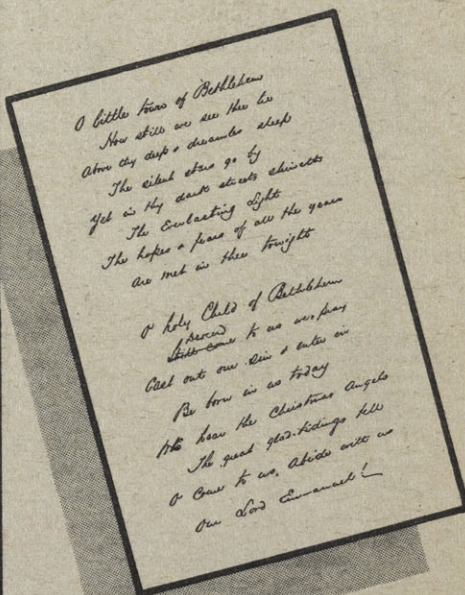 O little town of Bethlehem
How still we see thee lie
Above thy deep & dreamless sleep
The silent stars go by
Yet in thy dark streets shineth
The Everlasting Light
The hopes & fears of all the years
Are met in thee tonight
O holy Child of Bethlehem
Descend
Still come to us we pray
Cast out our sin & enter in
Be born in us today
We hear the Christmas Angels
The great glad-tidings tell
O come to us, abide with us
Our Lord Emmanuel!